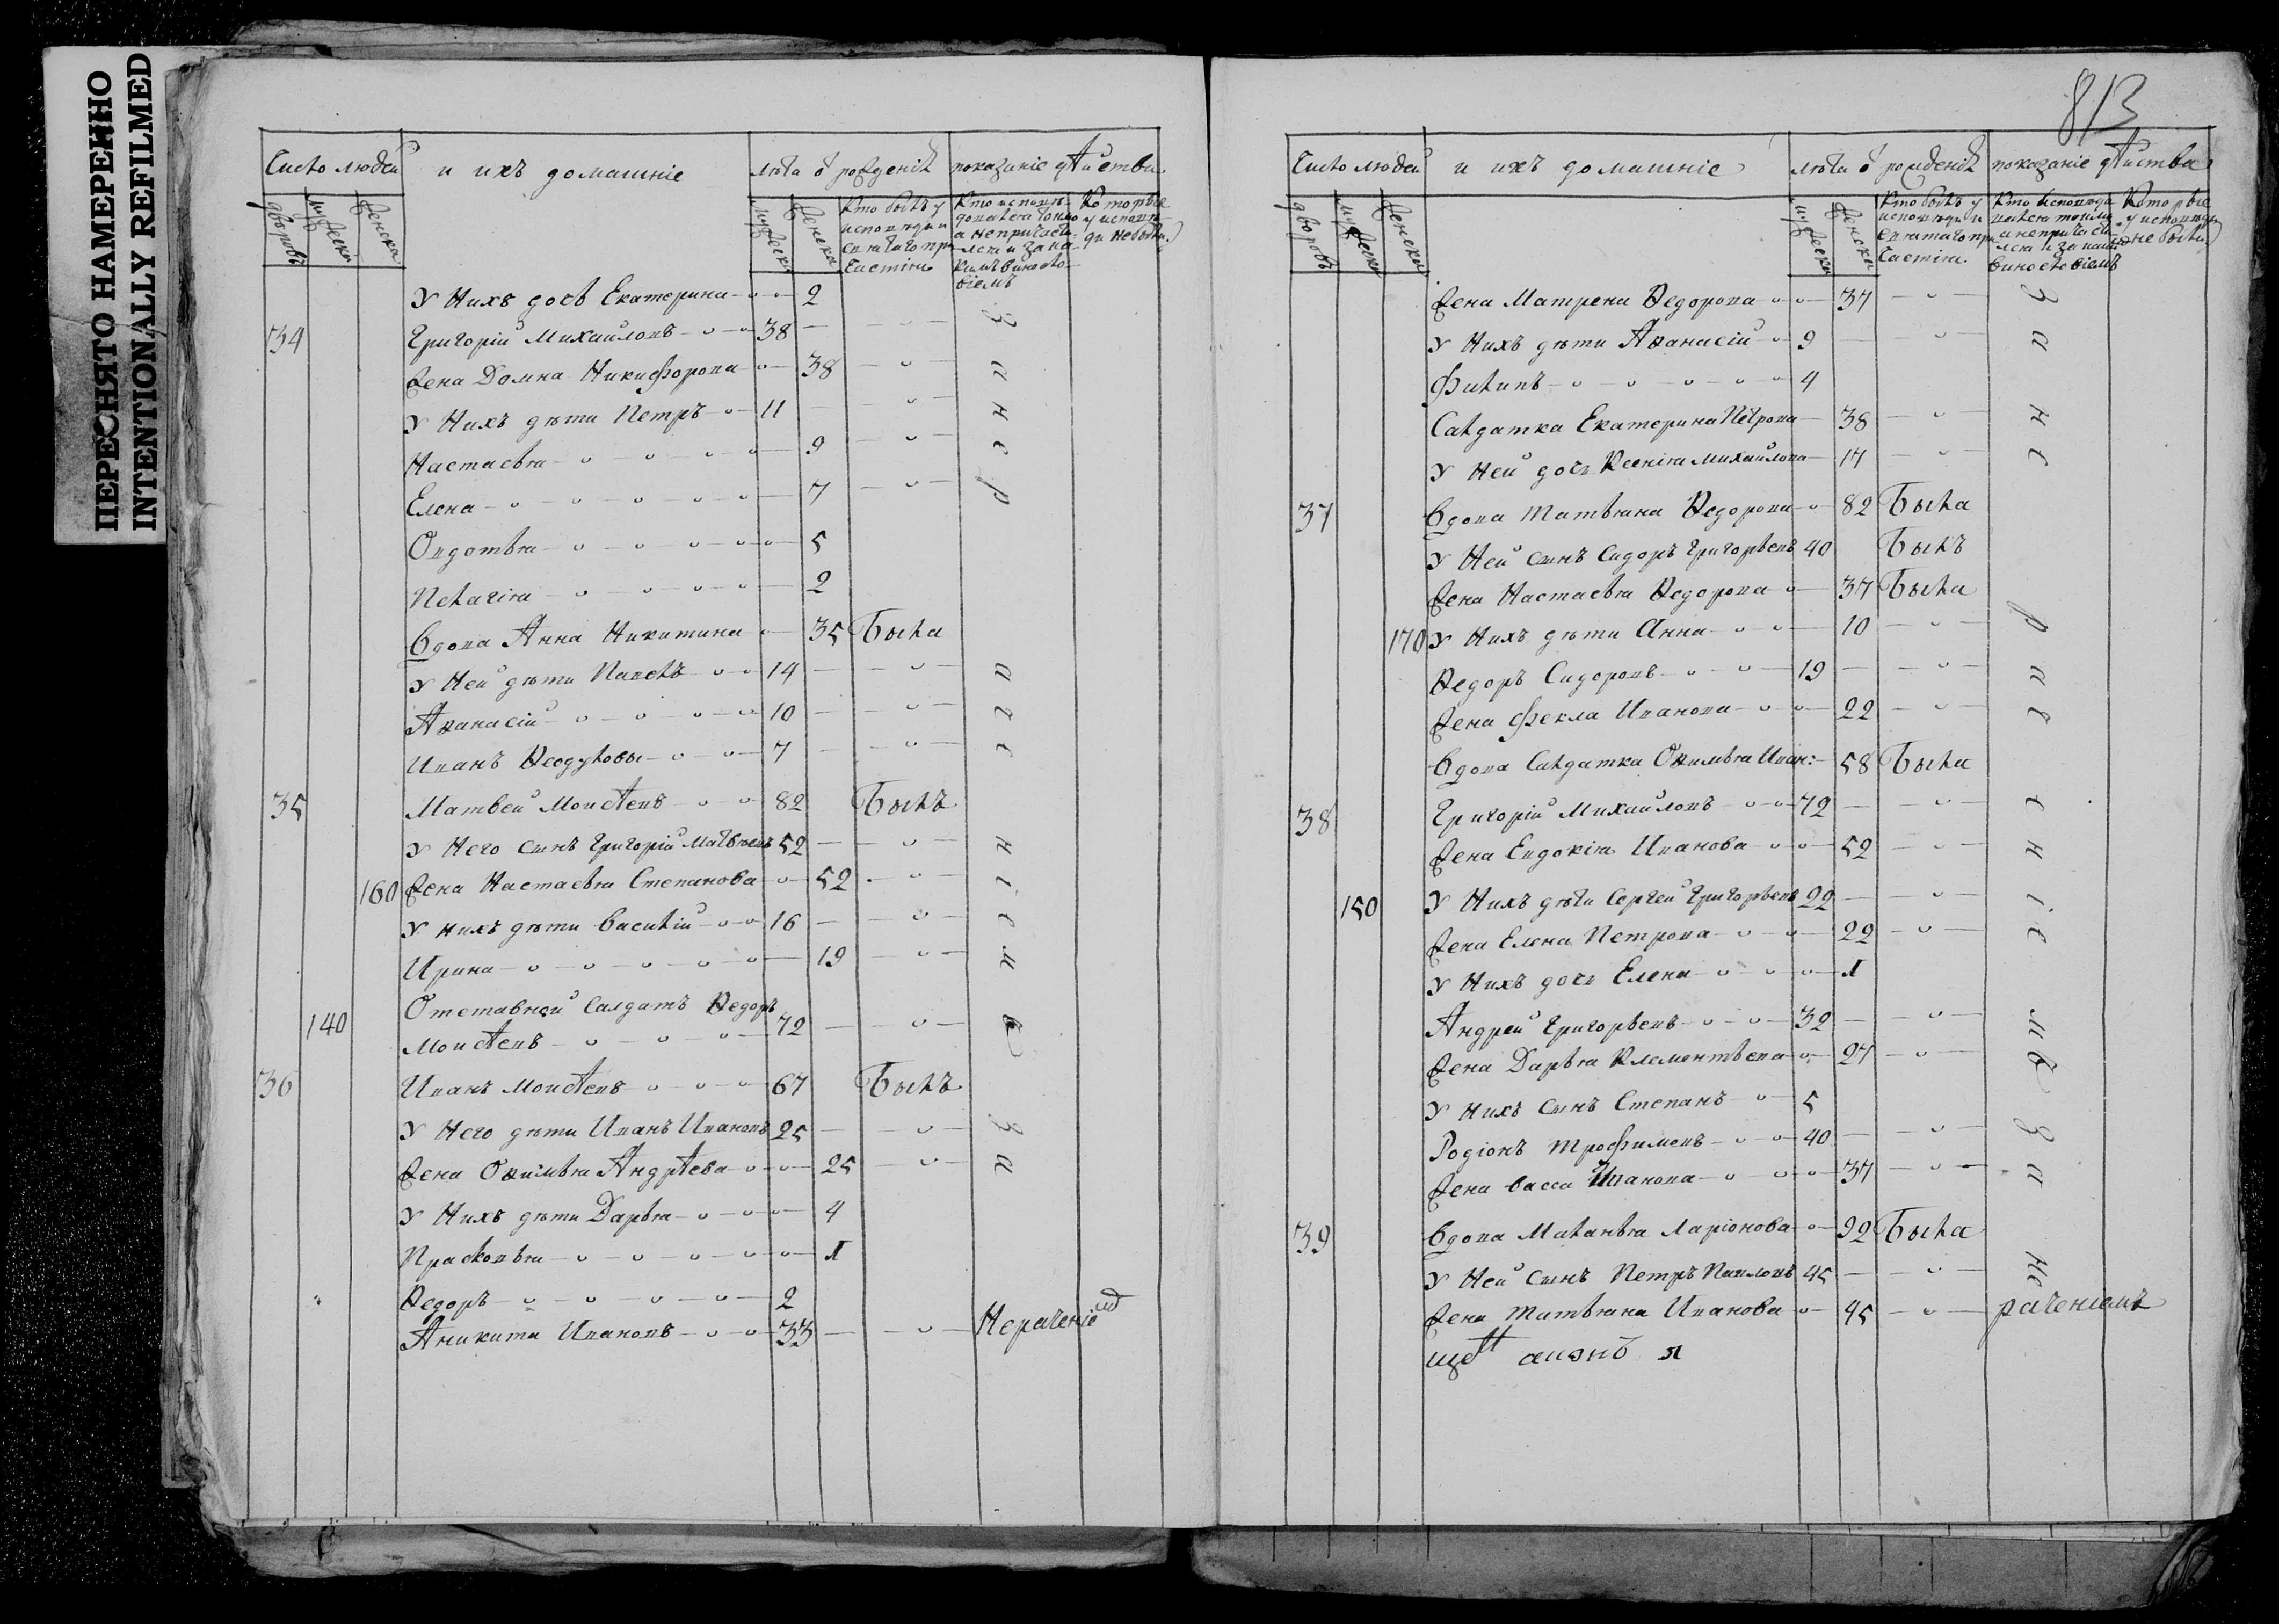 ПЕРЕСНЯТО НАМЕРЕННО
INTENTIONALLY REFILMED
Число людей
и ихъ домашніе
лѣта ѿ рожденія
показаніе дѣйства
дворовъ
мужеска
женска
мужеска
женска
Кто былъ у исповѣди и святаго причастія
Кто исповѣдовался токмо а не причастился и за какимъ винословіемъ
Которые у исповѣди не были
У Нихъ дочь Екатерина 2
34 Григорій Михайловъ 38
Жена Домна Никифорова 38
У Нихъ дѣти Петръ 11
Настасья 9
Елена 7
Овдотья 5
Пелагія 2
Вдова Анна Никитина 35 Была
У Ней дѣти Павелъ 14
Аѳанасій 10
Иванъ Ѳеодуловы 7
35 Матвей Моисѣевъ 82 Былъ
У Него сынъ Григорій Матвѣевъ 52
160 Жена Настасья Степанова 52
У нихъ дѣти Василій 16
Ирина 19
Отставной Салдатъ Ѳедоръ
140 Моисѣевъ 72
36 Иванъ Моисѣевъ 67 Былъ
У Него дѣти Иванъ Ивановъ 25
Жена Офимья Андрѣева 25
У Нихъ дѣти Дарья 4
Прасковья 1
Ѳедоръ 2
Аникита Ивановъ 33 Нераченіемъ
за нерачениемъ
за
813
Число людей
и ихъ домашніе
лѣта ѿ рожденія
показаніе дѣйства
дворовъ
мужеска
женска
мужеска
женска
Кто былъ у исповѣди и святаго причастія
Кто исповѣдовался токмо а не причастился и за какимъ винословіемъ
Которые у исповѣди не были
Жена Матрена Ѳедорова 37
У Нихъ дѣти Аѳанасій 9
Филипъ 4
Салдатка Екатерина Петрова 38
У Ней дочь Ксенія Михайлова 17
37 Вдова Татьяна Ѳедорова 82 Была
У Ней сынъ Сидоръ Григорьевъ 40 Былъ
Жена Настасья Ѳедорова 37 Была
170 У Нихъ дѣти Анна 10
Ѳедоръ Сидоровъ 19
Жена Фекла Иванова 22
Вдова Салдатка Офимья Иван: 58 Была
38 Григорій Михайловъ 72
Жена Евдокія Иванова 52
150 У Нихъ дѣти Сергей Григорьевъ 22
Жена Елена Петрова 22
У Нихъ дочь Елена 1
Андрей Григорьевъ 32
Жена Дарья Клементьева 27
У нихъ сынъ Степанъ 5
Родіонъ Трофимовъ 40
Жена Васса Иванова 37
39 Вдова Маланья Ларіонова 92 Была
У Ней сынъ Петръ Павловъ 45
Жена Татьяна Иванова 45
за нераченіемъ
за не
раченіемъ